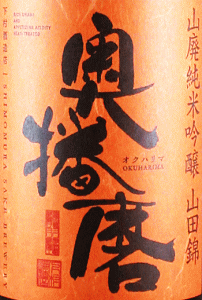 山廃純米吟醸 山田錦
奥播磨
オクハリマ
OKUHARIMA
下村酒造店 | SHIMOMURA SAKE BREWERY